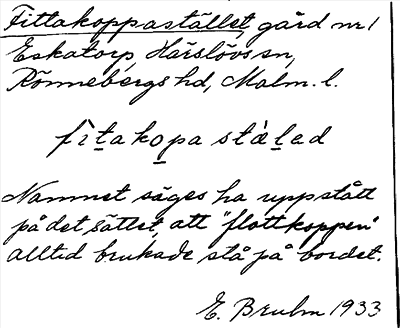 Fittakoppastället, gård nr 1
Eskatorp, Härslövs sn,
Rönnebergs hd, Malm. l.
fìtakopa stàlad
Namnet säges ha uppstått
på det sättet, att "flottkoppen"
alltid brukade stå på bordet.
E. Bruhn 1933